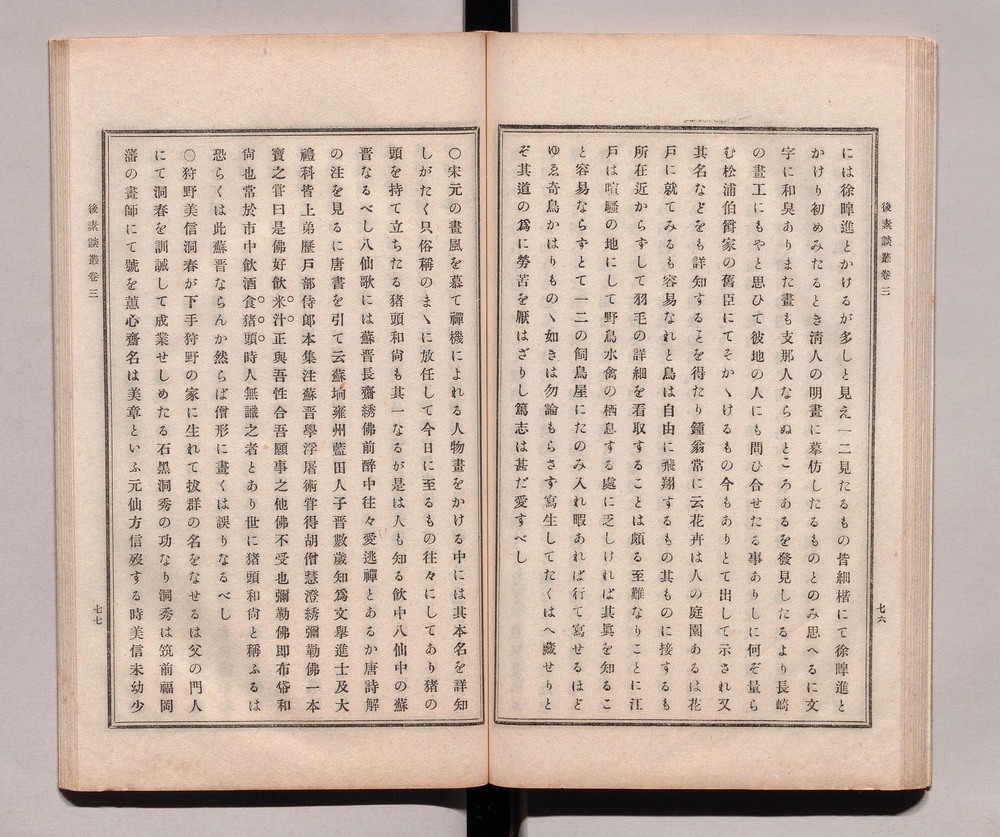 後素談叢卷三
七六
には徐暐進とかけるが多しと見え一二見たるもの皆細楷にて徐暐進と
かけり初めみたるとき淸人の明畫に摹仿したるものとのみ思へるに文
字に和臭ありまた畫も支那人ならぬところあるを發見したるより長崎
の畫工にもやと思ひて彼地の人にも問ひ合せたる事ありしに何ぞ量ら
む松浦伯爵家の舊臣にてそかゝけるもの今もありとて出して示され又
其名などをも詳知することを得たり鍾翁常に云花卉は人の庭園あるは花
戶に就てみるも容易なれと鳥は自由に飛翔するもの其ものに接するも
所在近からすして羽毛の詳細を看取することは頗る至難なりことに江
戶は喧騷の地にして野鳥水禽の栖息する處に乏しければ其眞を知るこ
と容易ならすとて一二の飼鳥屋にたのみ入れ暇あれば行て寫せるほど
ゆゑ奇鳥かはりものゝ如きは勿論もらさす寫生してたくはへ藏せりと
ぞ其道の爲に勞苦を厭はざりし篤志は甚だ愛すべし
〇宋元の畫風を慕て禪機によれる人物畫をかける中には其本名を詳知
しがたく只俗稱のまゝに放任して今日に至るもの往々にしてあり猪の
頭を持て立ちたる猪頭和尙も其一なるが是は人も知る飮中八仙中の蘇
晉なるべし八仙歌には蘇晉長齋綉佛前醉中往々愛逃禪とあるか唐詩解
の注を見るに唐書を引て云蘇珦雍州藍田人子晉數歲知爲文擧進士及大
禮科皆上弟歷戶部侍郞本集注蘇晉學浮屠術嘗得胡僧慧澄綉彌勒佛一本
寶之嘗曰是佛好飮米汁正與吾性合吾願事之他佛不受也彌勒佛卽布岱和
尙也常於市中飮酒食猪頭時人無識之者とあり世に猪頭和尙と稱ふるは
恐らくは此蘇晉ならんか然らば僧形に畫くは誤りなるべし
〇狩野美信洞春が下手狩野の家に生れて拔群の名をなせるは父の門人
にて洞春を訓誡して成業せしめたる石黑洞秀の功なり洞秀は筑前福岡
藩の畫師にて號を蕙心齋名は美章といふ元仙方信歿する時美信未幼少
後素談叢卷三
七七